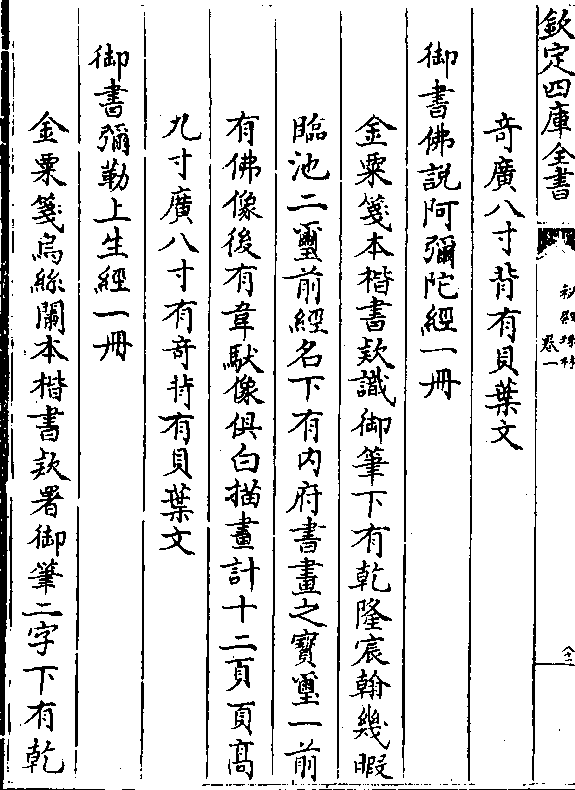 欽定四庫全書
秘殿珠林
卷一
奇廣八寸背有貝葉文
御書佛說阿彌陀經一冊
金粟箋本楷書欵識御筆下有乾隆宸翰幾暇
臨池二璽前經名下有内府書畫之寶璽一前
有佛像後有韋馱像俱白描畫計十二頁頁髙
九寸廣八寸有奇背有貝葉文
御書彌勒上生經一冊
金粟箋烏絲闌本楷書欵署御筆二字下有乾